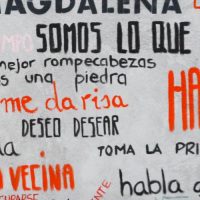 MAGDALENA
SOMOS LO QUE
mejor rompecabezas
es una piedra
me da risa
HA
DESEO DESEAR
TOMA LA PRI
VECINA
habla